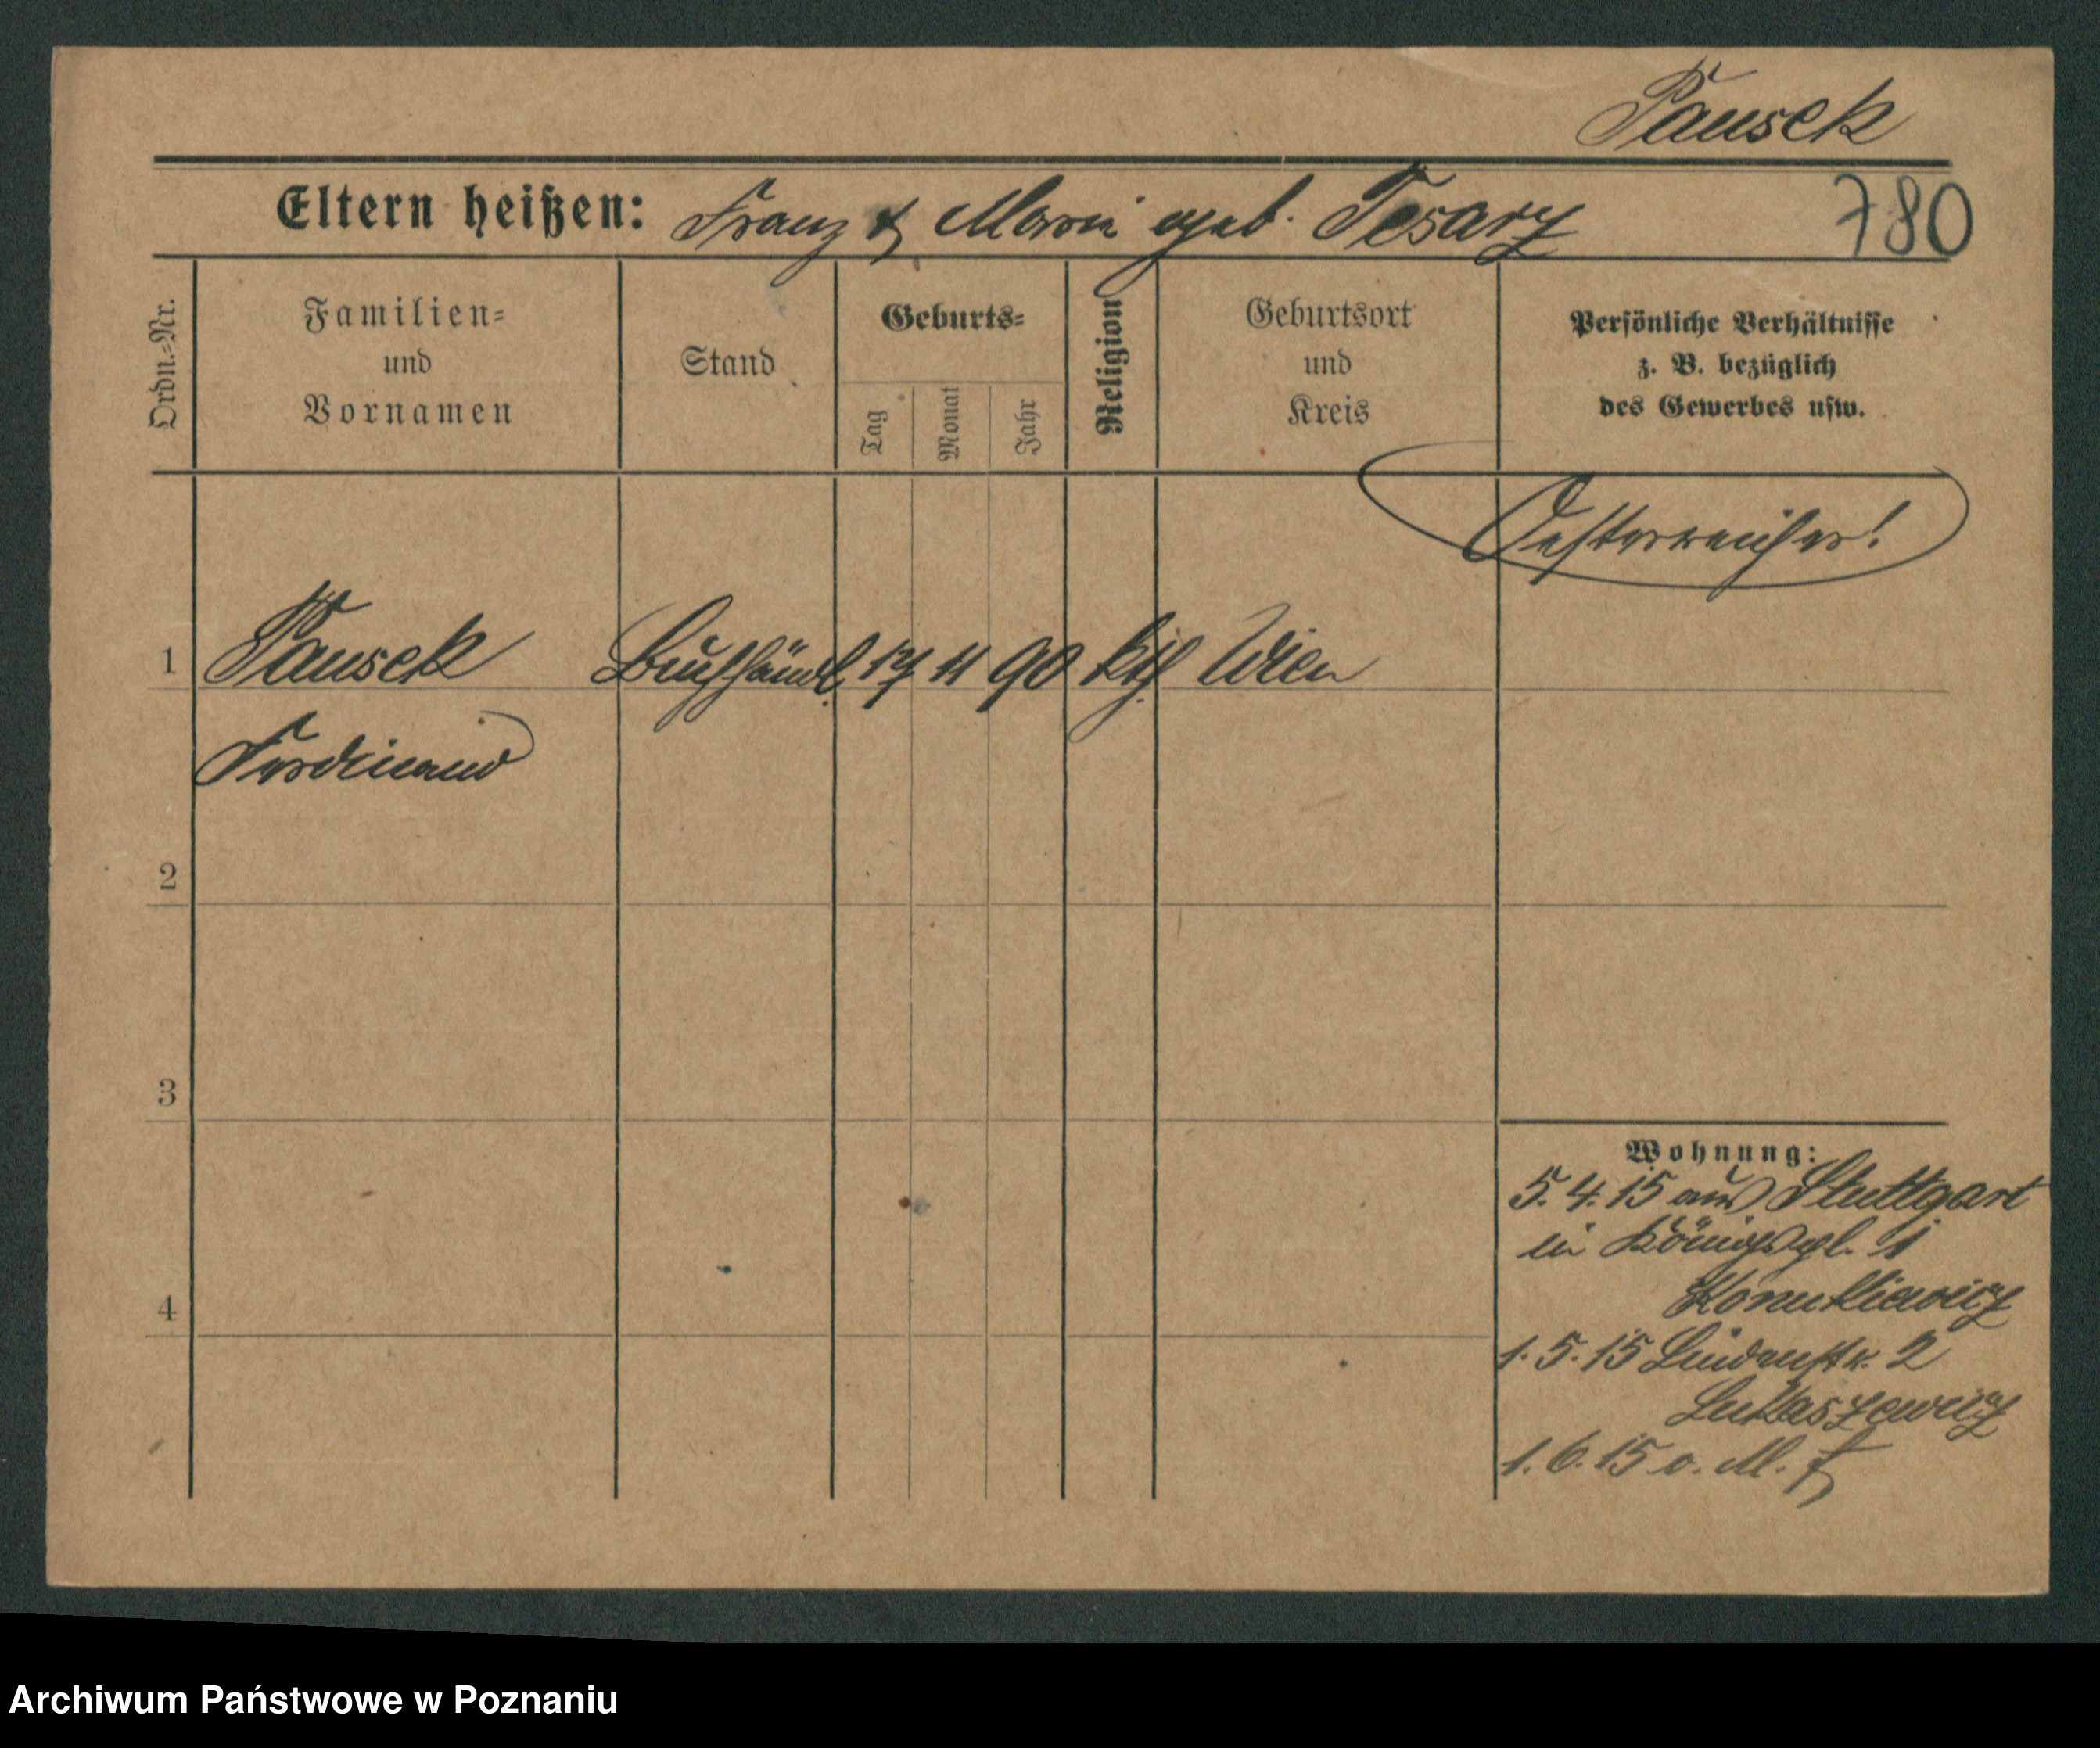 Pausek
Eltern heißen: Franz & Marie geb. Tesarz
780
Ordn.-Nr.
Familien-
und
Vornamen
Stand
Geburts-
Tag
Monat
Jahr
Religion
Geburtsort
und
Kreis
Persönliche Verhältnisse
z. B. bezüglich
des Gewerbes usw.
Oesterreicher!
1 Pausek Buchhändl. 17 11 90 kth. Wien
Ferdinand
2
3
4
Wohnung:
5. 4. 15 aus Stuttgart
in Königspl. 1
1. 5. 15 Lindenstr. 2
Lukaszewicz
1. 6. 15 o. M. f
Archiwum Państwowe w Poznaniu